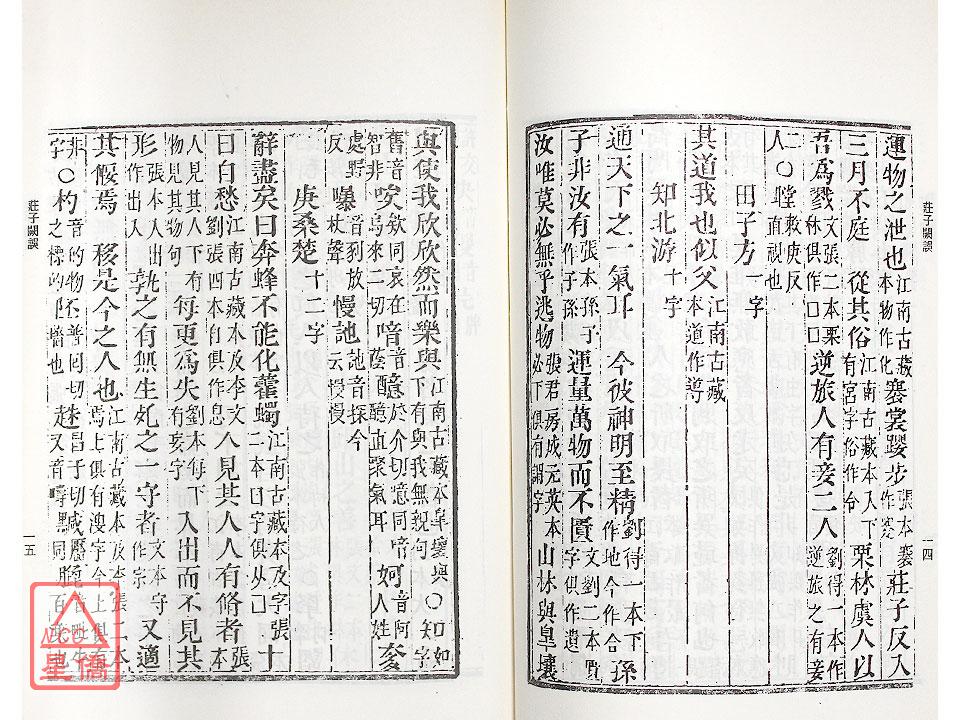 莊子闕誤
一四
運物之泄也江南古藏本物作化蹇裳躩步張本蹇作褰莊子反入
三月不庭 從其俗江南古藏本入下有宮字俗作令栗林虞人以
吾爲戮文張二本栗林俱作囗囗逆旅人有妾二人劉得一本作逆旅之有妾
人○瞠敕庚反直視也
田子方一字
其道我也似父江南古藏本道作導
知北游十字
通天下之一氣耳 今彼神明至精劉得一本下今作合 孫
子非汝有張本孫子作子孫 運量萬物而不匱文劉二本匱字俱作遺
汝唯莫必無乎逃物張君房成元英本必下俱有謂字 山林與皐壤
與使我欣欣然而樂與江南古藏本皐壤與下有與我無親句○知如字
舊音智非㕦哀在烏來二切喑音蔭醷於介切憶同喑醷直聚氣耳 妸音阿人姓 奓
處野反嚗音豹放杖聲慢訑訑音探今云慢慢
庚桑楚十二字
辭盡矣曰奔蜂不能化藿蠋江南古藏本及張二本曰字俱从囗十
日自愁江南古藏本及李文劉張四本自俱作息人見其人人有脩者張本
人見其人下有物見其物句每更爲失劉本每下有妄字入出而不見其
形張本入出作出入孰之有無生死之一守者文本守作宗又適
其偃焉 移是今之人也江南古藏本及張二本焉上俱有溲字今上俱有
非字○杓音的又匹么切
莊子闕誤
一五
星僑